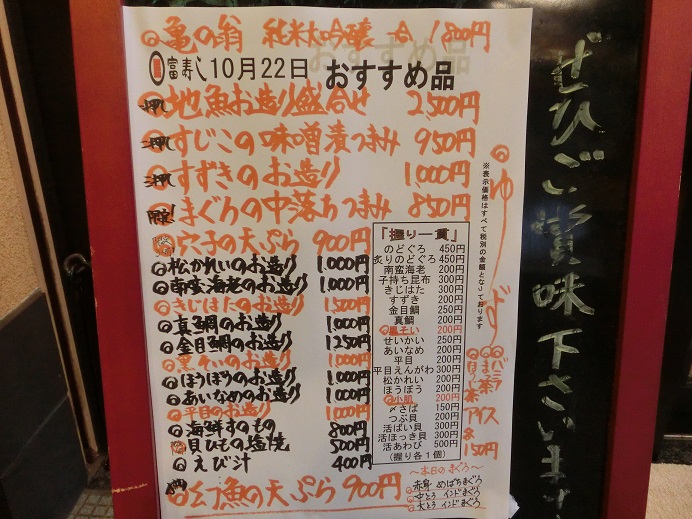 亀の翁 純米大吟醸 合 1800円
富寿し 10月22日 おすすめ品
地魚お造り盛合せ 2,500円
すじこの味噌漬つまみ 950円
すずきのお造り 1,000円
まぐろの中落ちつまみ 850円
穴子の天ぷら 900円
松かれいのお造り 1,000円
南蛮海老のお造り 1,000円
きじはたのお造り 1,500円
真鯛のお造り 1,000円
金目鯛のお造り 1,250円
黒そいのお造り 1,000円
ほうぼうのお造り 1,000円
あいなめのお造り 1,000円
平目のお造り 1,000円
海鮮すのもの 800円
貝ひもの塩焼 500円
えび汁 400円
幻魚の天ぷら 900円
「握り一貫」
のどぐろ 450円
炙りのどぐろ 450円
南蛮海老 200円
子持ち昆布 300円
きじはた 300円
すずき 200円
金目鯛 250円
真鯛 200円
黒そい 200円
せいかい 250円
あいなめ 200円
平目 200円
平目えんがわ 300円
松かれい 200円
ほうぼう 200円
小肌 200円
〆さば 150円
つぶ貝 200円
活ばい貝 300円
活ほっき貝 300円
活あわび 500円
(握り各1個)
※表示価格はすべて税別の金額となっております
ゆず
バニラ
まっ茶
アイス
各150円
〜本日のまぐろ〜
赤身 めばちまぐろ
中とろ インドまぐろ
大とろ インドまぐろ
ぜひご賞味下さいませ